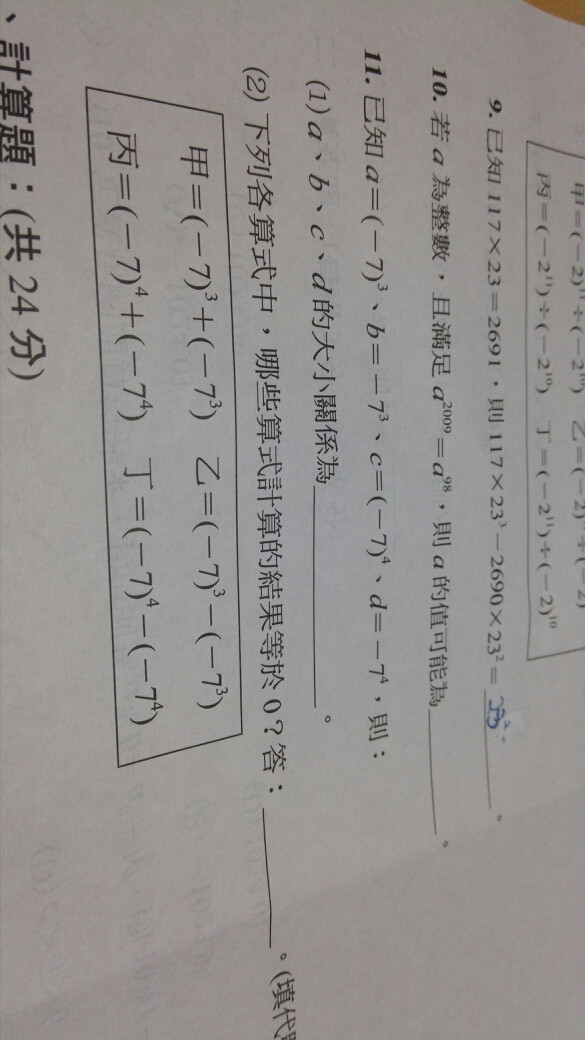 丙=(－2¹¹)÷(－2¹⁰) 丁=(－2¹¹)÷(－2)¹⁰
9. 已知 117×23=2691，則 117×23³－2690×23²= 23²
10. 若 a 為整數，且滿足 a²⁰⁰⁹=a⁹⁸，則 a 的值可能為＿＿＿＿。
11. 已知 a=(－7)³、b=－7³、c=(－7)⁴、d=－7⁴，則：
(1) a、b、c、d 的大小關係為＿＿＿＿。
(2) 下列各算式中，哪些算式計算的結果等於 0？答：＿＿＿＿。(填代
甲=(－7)³+(－7³) 乙=(－7)³－(－7³)
丙=(－7)⁴+(－7⁴) 丁=(－7)⁴－(－7⁴)
、計算題：(共 24 分)